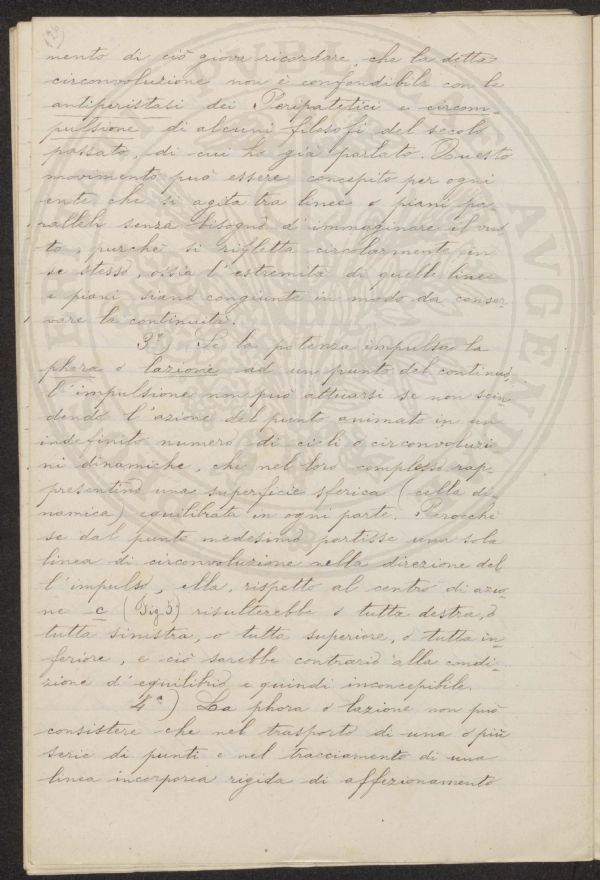 126
mento di ciò giova ricordare, che la detta
circonvoluzione non è confondibile con le
antiperistasi dei Peripatetici e circom-
pulsione di alcuni filosofi del secolo
passato, di cui ho già parlato. Questo
movimento può essere concepito per ogni
ente che si agita tra linee o piani pa-
ralleli senza bisogno d'immaginare il vuo
to, purchè si rifletta circolarmente in
se stesso, ossia l'estremità di quelle linee
e piani siano congiunte in modo da conser-
vare la continuità.
3ª) Se la potenza impulsa la
phora o lazione ad un punto del continuo,
l'impulsione non può attuarsi se non scin-
dendo l'azione del punto animato in un
indefinito numero di cicli o circonvoluzi
ni dinamiche, che nel loro complesso rap-
presentino una superficie sferica (cella di-
namica) equilibrata in ogni parte. Perocchè
se dal punto medesimo partisse una sola
linea di circonvoluzione nella direzione del
l'impulso, ella, rispetto al centro di azio
ne c (Fig. 5) risulterebbe o tutta destra, o
tutta sinistra, o tutta superiore, o tutta in-
feriore, e ciò sarebbe contrario alla condi-
zione d'equilibrio e quindi inconcepibile.
4ª) La phora o lazione non può
consistere che nel trasporto di una o più
serie di punti e nel tracciamento di una
linea incorporea rigida di affezionamento